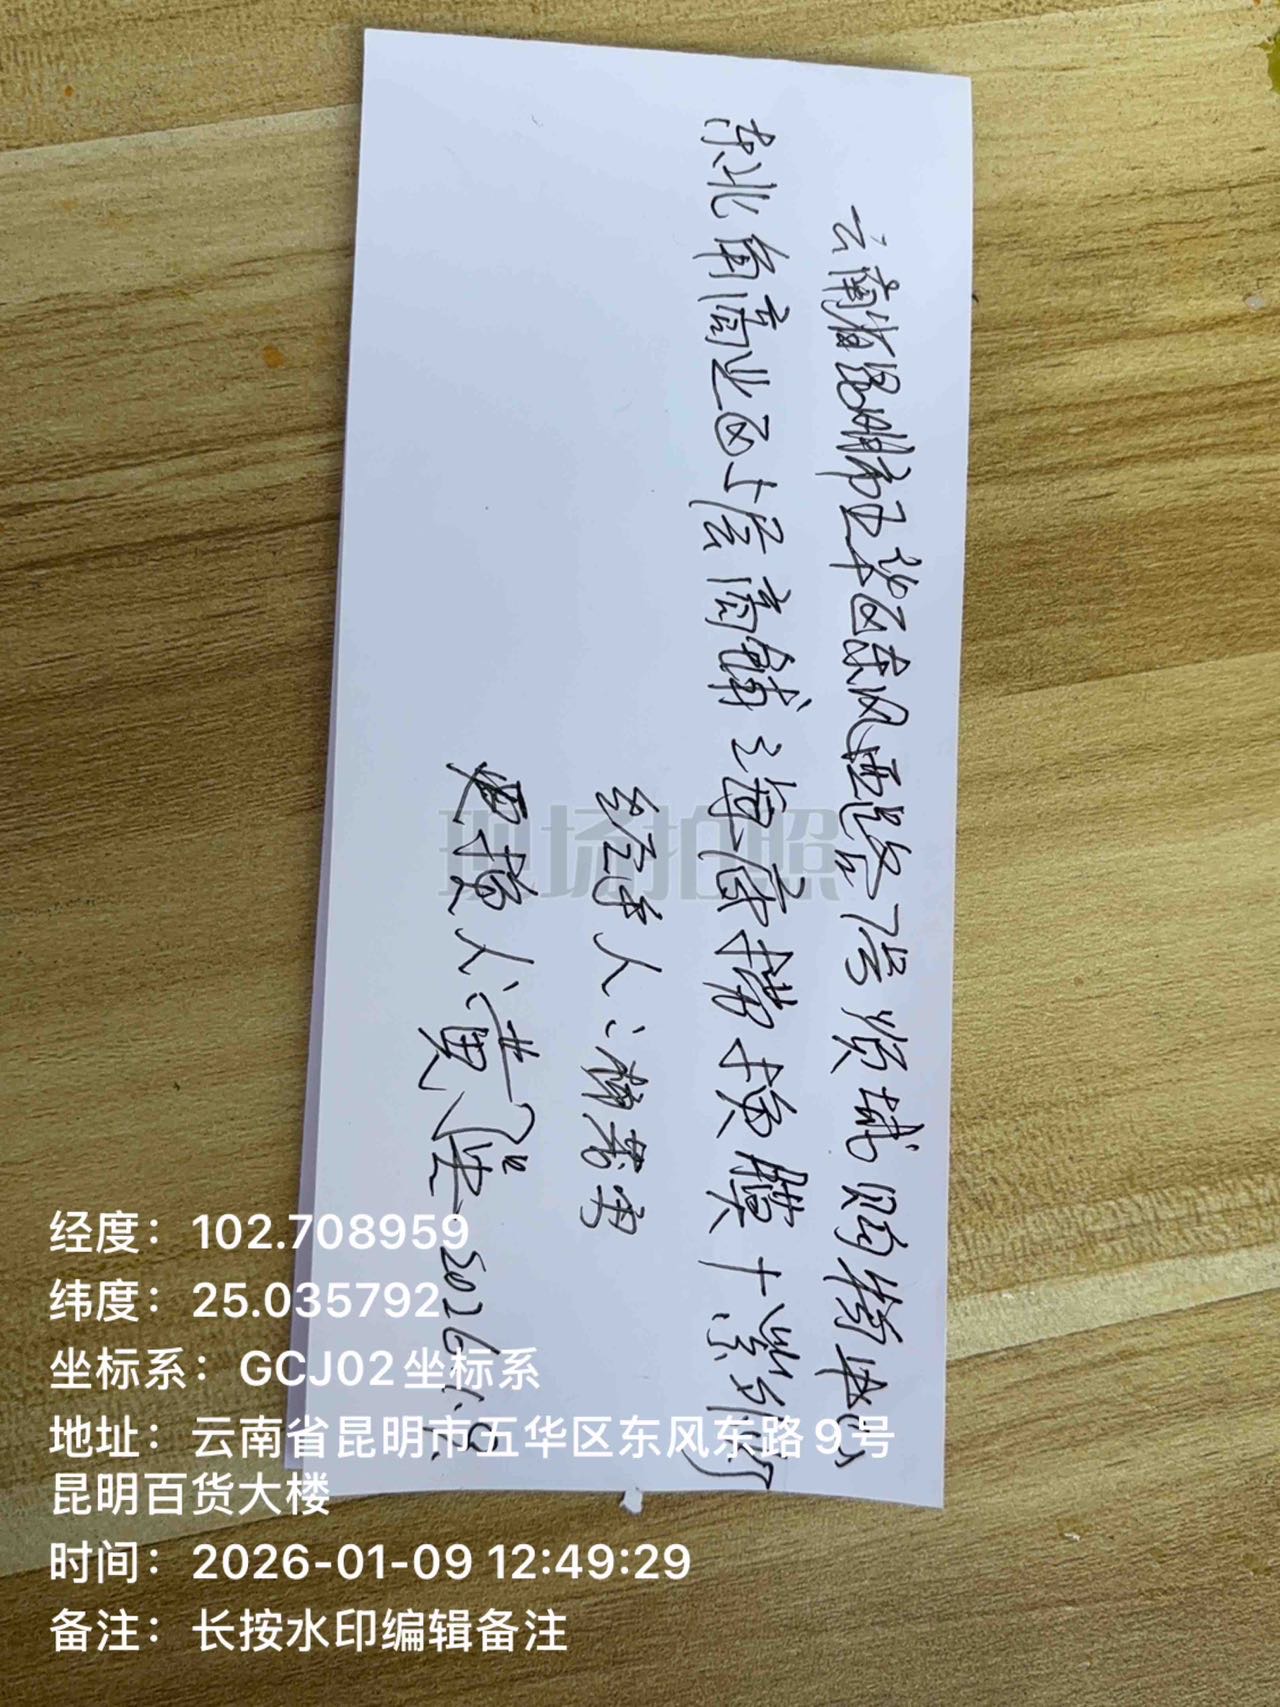 云南省昆明市五华区东风西路1号顺城购物中心
东北角商业区上层商铺之海底捞换膜十紫外灯
经手人:杨若男
更换人:黄
2026.1.9.
现场拍照
经度:102.708959
纬度:25.035792
坐标系:GCJ02坐标系
地址:云南省昆明市五华区东风东路9号
昆明百货大楼
时间:2026-01-09 12:49:29
备注:长按水印编辑备注